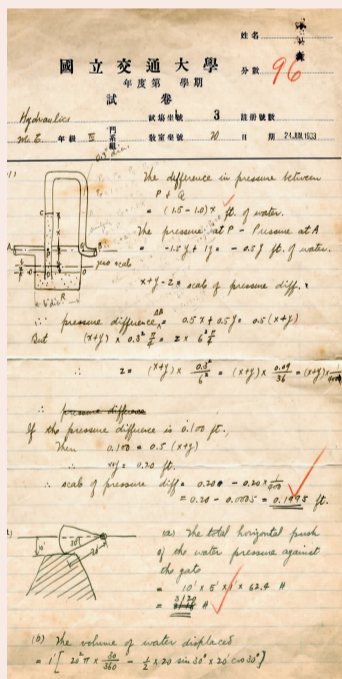 姓名
國立交通大學
分數 96
年度第 學期
試卷
Hydraulics 試場坐號 3 註冊號數
M. E. 年級 IV 門系組 教室坐號 70 日期 24 JUN 1933
0.3" dia.
The difference in pressure between
P & Q
= (1.5 - 1.0) x ft. of water.
The pressure at P - Pressure at A
= -1.5y + 1y = -0.5y ft. of water.
zero scale
x+y-z = scale of pressure diff.
6" dia.
∴ pressure difference = 0.5x + 0.5y = 0.5(x+y)
But (x+y) × 0.3² π/4 = z × 6² π/4
∴ z = (x+y) × 0.3²/6² = (x+y) × 0.09/36 = (x+y) × 1/400
∴ pressure difference
If the pressure difference is 0.100 ft.,
Then 0.100 = 0.5 (x+y)
∴ x+y = 0.20 ft.
∴ scale of pressure diff = 0.200 - 0.20 × 1/400
= 0.20 - 0.0005 = 0.1995 ft.
(a) The total horizontal push
of the water pressure against
the gate
= 10' × 5' × 1' × 62.4 #
= 3120 #
10'
30°
20'
(b) The volume of water displaced
= 1' [ 20² π × 30/360 - 1/2 × 20 sin 30° × 20' cos 30° ]